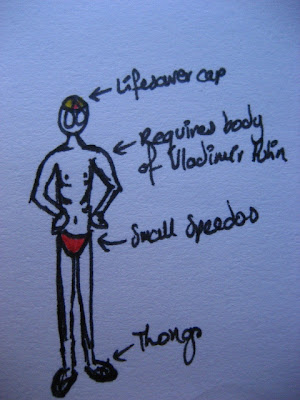 Lifesaver cap
Requires body
of Vladimir Putin
Small Speedos
Thongs